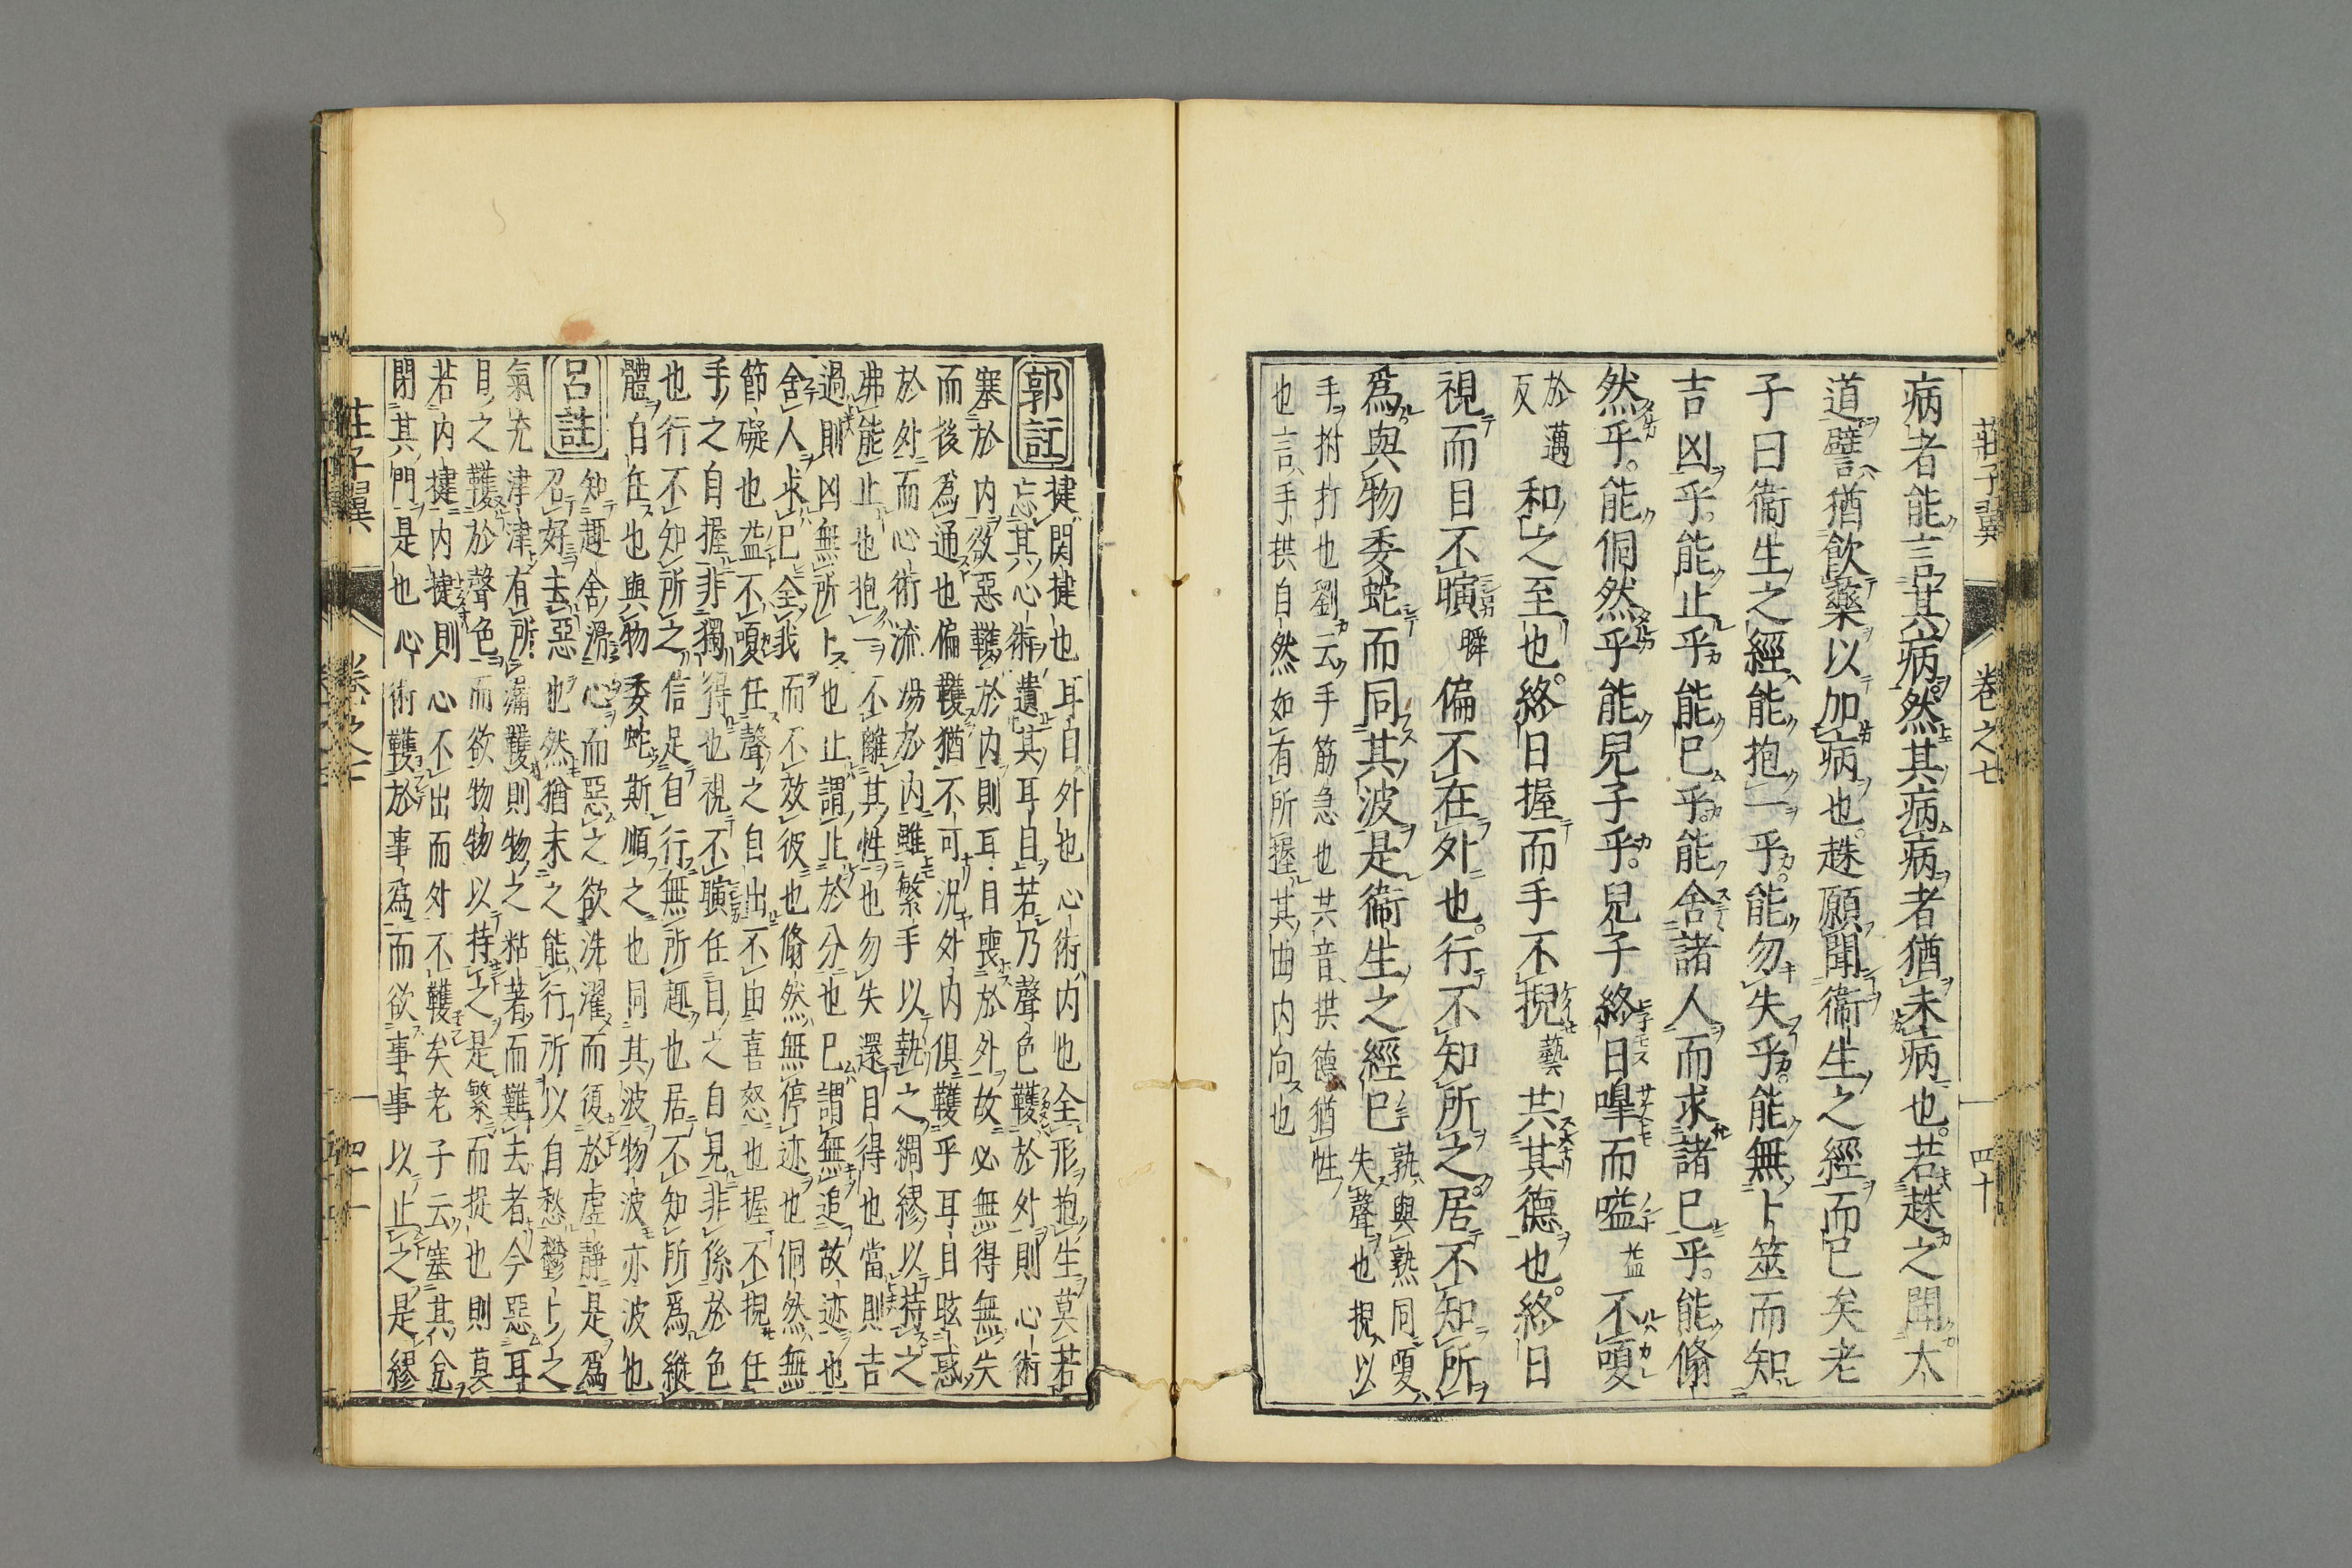 莊子翼 卷之七 四十
病者能言其病然其病病者猶未病也若趎之聞大
道譬猶飮藥以加病也趎願聞衞生之經而已矣老
子曰衞生之經能抱一乎能勿失乎能無卜筮而知
吉凶乎能止乎能已乎能舍諸人而求諸已乎能翛
然乎能侗然乎能兒子乎兒子終日嘷而嗌益不嗄
於邁
反
和之至也終日握而手不掜藝共其德也終日
視而目不瞚瞬偏不在外也行不知所之居不知所
爲與物委蛇而同其波是衞生之經已
孰與熟同嗄
失聲也掜以
手拊打也劉云手筋急也共音拱德猶性
也言手拱自然如有所握其曲内向也
郭註
揵関揵也耳目外也心術内也全形抱生莫若
忘其心術遺其耳目若乃聲色韄於外則心術
塞於内欲惡韄於内則耳目喪於外故必無得無失
而後爲通也偏韄猶不可况外内俱韄乎耳目眩惑
於外而心術流蕩於内雖繁手以執之綢繆以持之
弗能止也抱一不離其性也勿失還自得也當則吉
過則凶無所卜也止謂止於分也已謂無追故迹也
舍人求已全我而不效彼也翛然無停迹也侗然無
節礙也益不嗄任聲之自出不由喜怒也握不掜任
手之自握非獨得也視不瞚任目之自見非係於色
也行不知所之信足自行無所趣也居不知所爲縱
體自任也與物委蛇斯順之也同其波物波亦波也
呂註
知趣舍滑心而惡之欲洗濯而復於虚靜是爲
召好去惡也然猶未之能行所以自愁鬱卜之
氣充津津有所漏韄則物之粘著而難去者今惡耳
目之韄於聲色而欲物物以持之是繁而捉也則莫
若内揵内揵則心不出而外不韄矣老子云塞其兊
閉其門是也心術韄於事爲而欲事事以止之是繆
莊子翼 卷之七 四十一